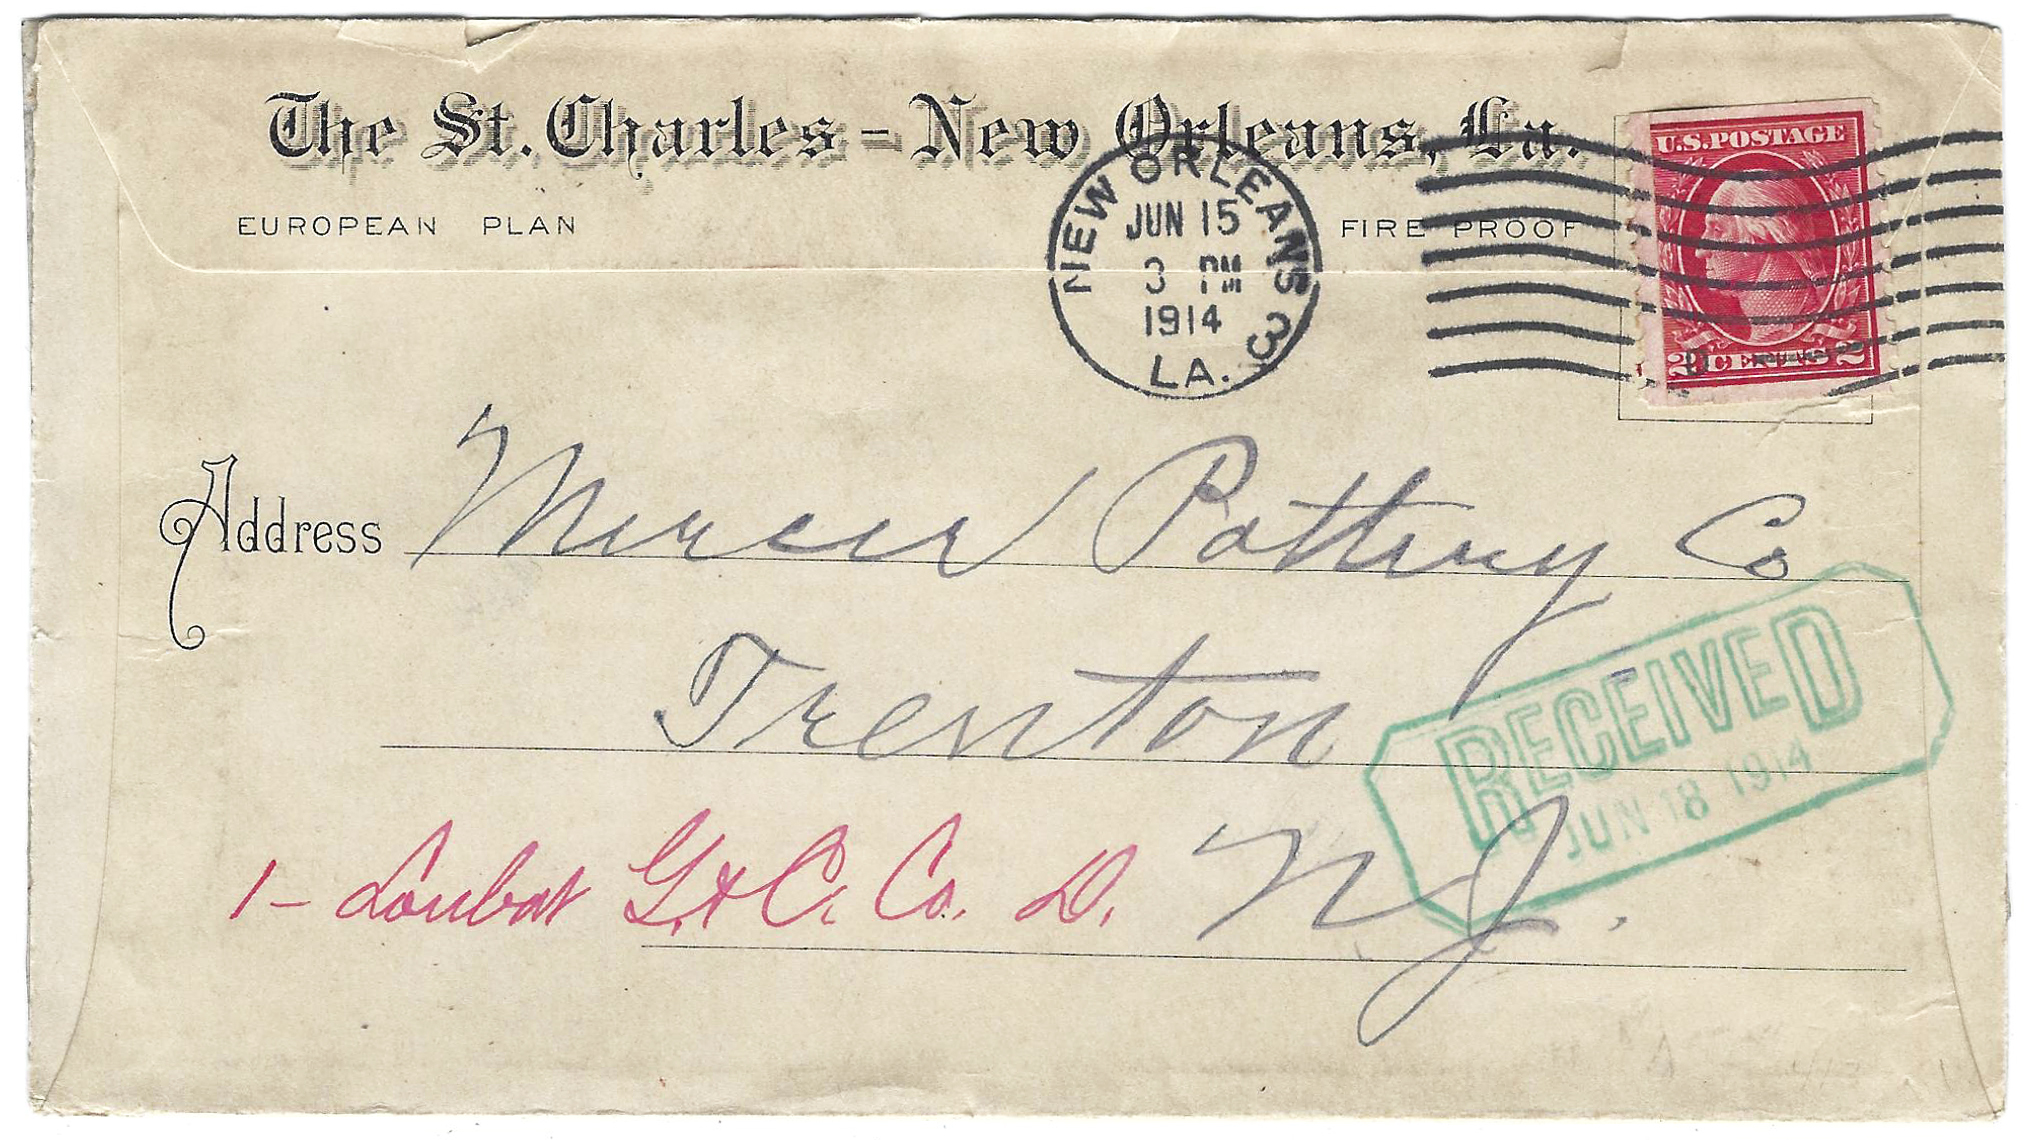 The St. Charles – New Orleans, La.
EUROPEAN PLAN
FIRE PROOF
NEW ORLEANS 3
JUN 15
3 PM
1914
LA.
U.S. POSTAGE
2 CENTS 2
Address Mercer Pottery Co
Trenton
RECEIVED
JUN 18 1914
1 – Loubat G. & C. Co. D.
N.J.